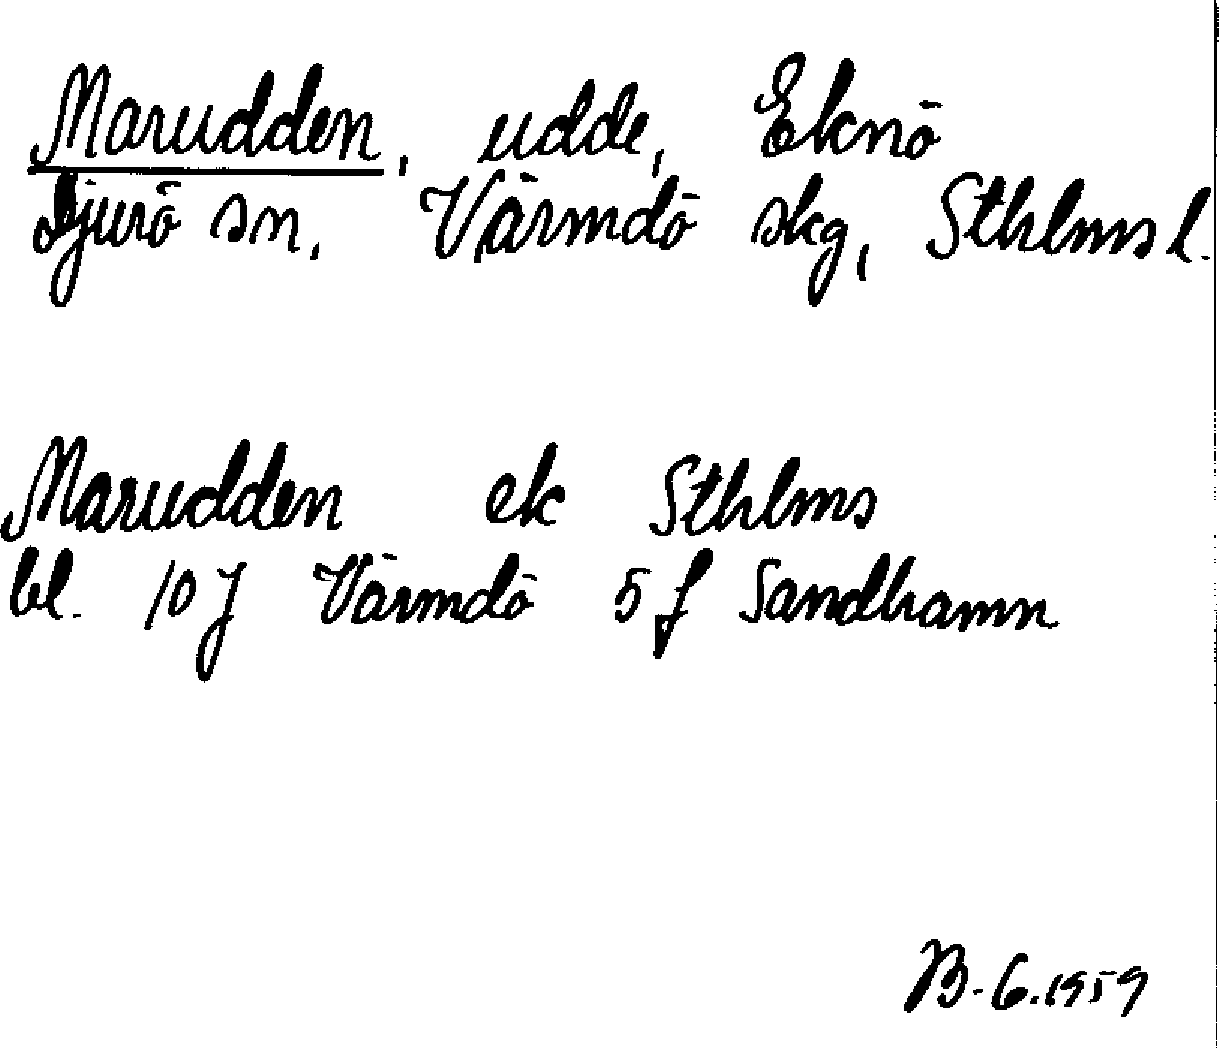 Marudden, udde, Eknö
Djurö sn, Värmdö skg, Sthlms l.
Marudden ek Sthlms
bl. 10 J Värmdö 5 f Sandhamn
B-G.1959